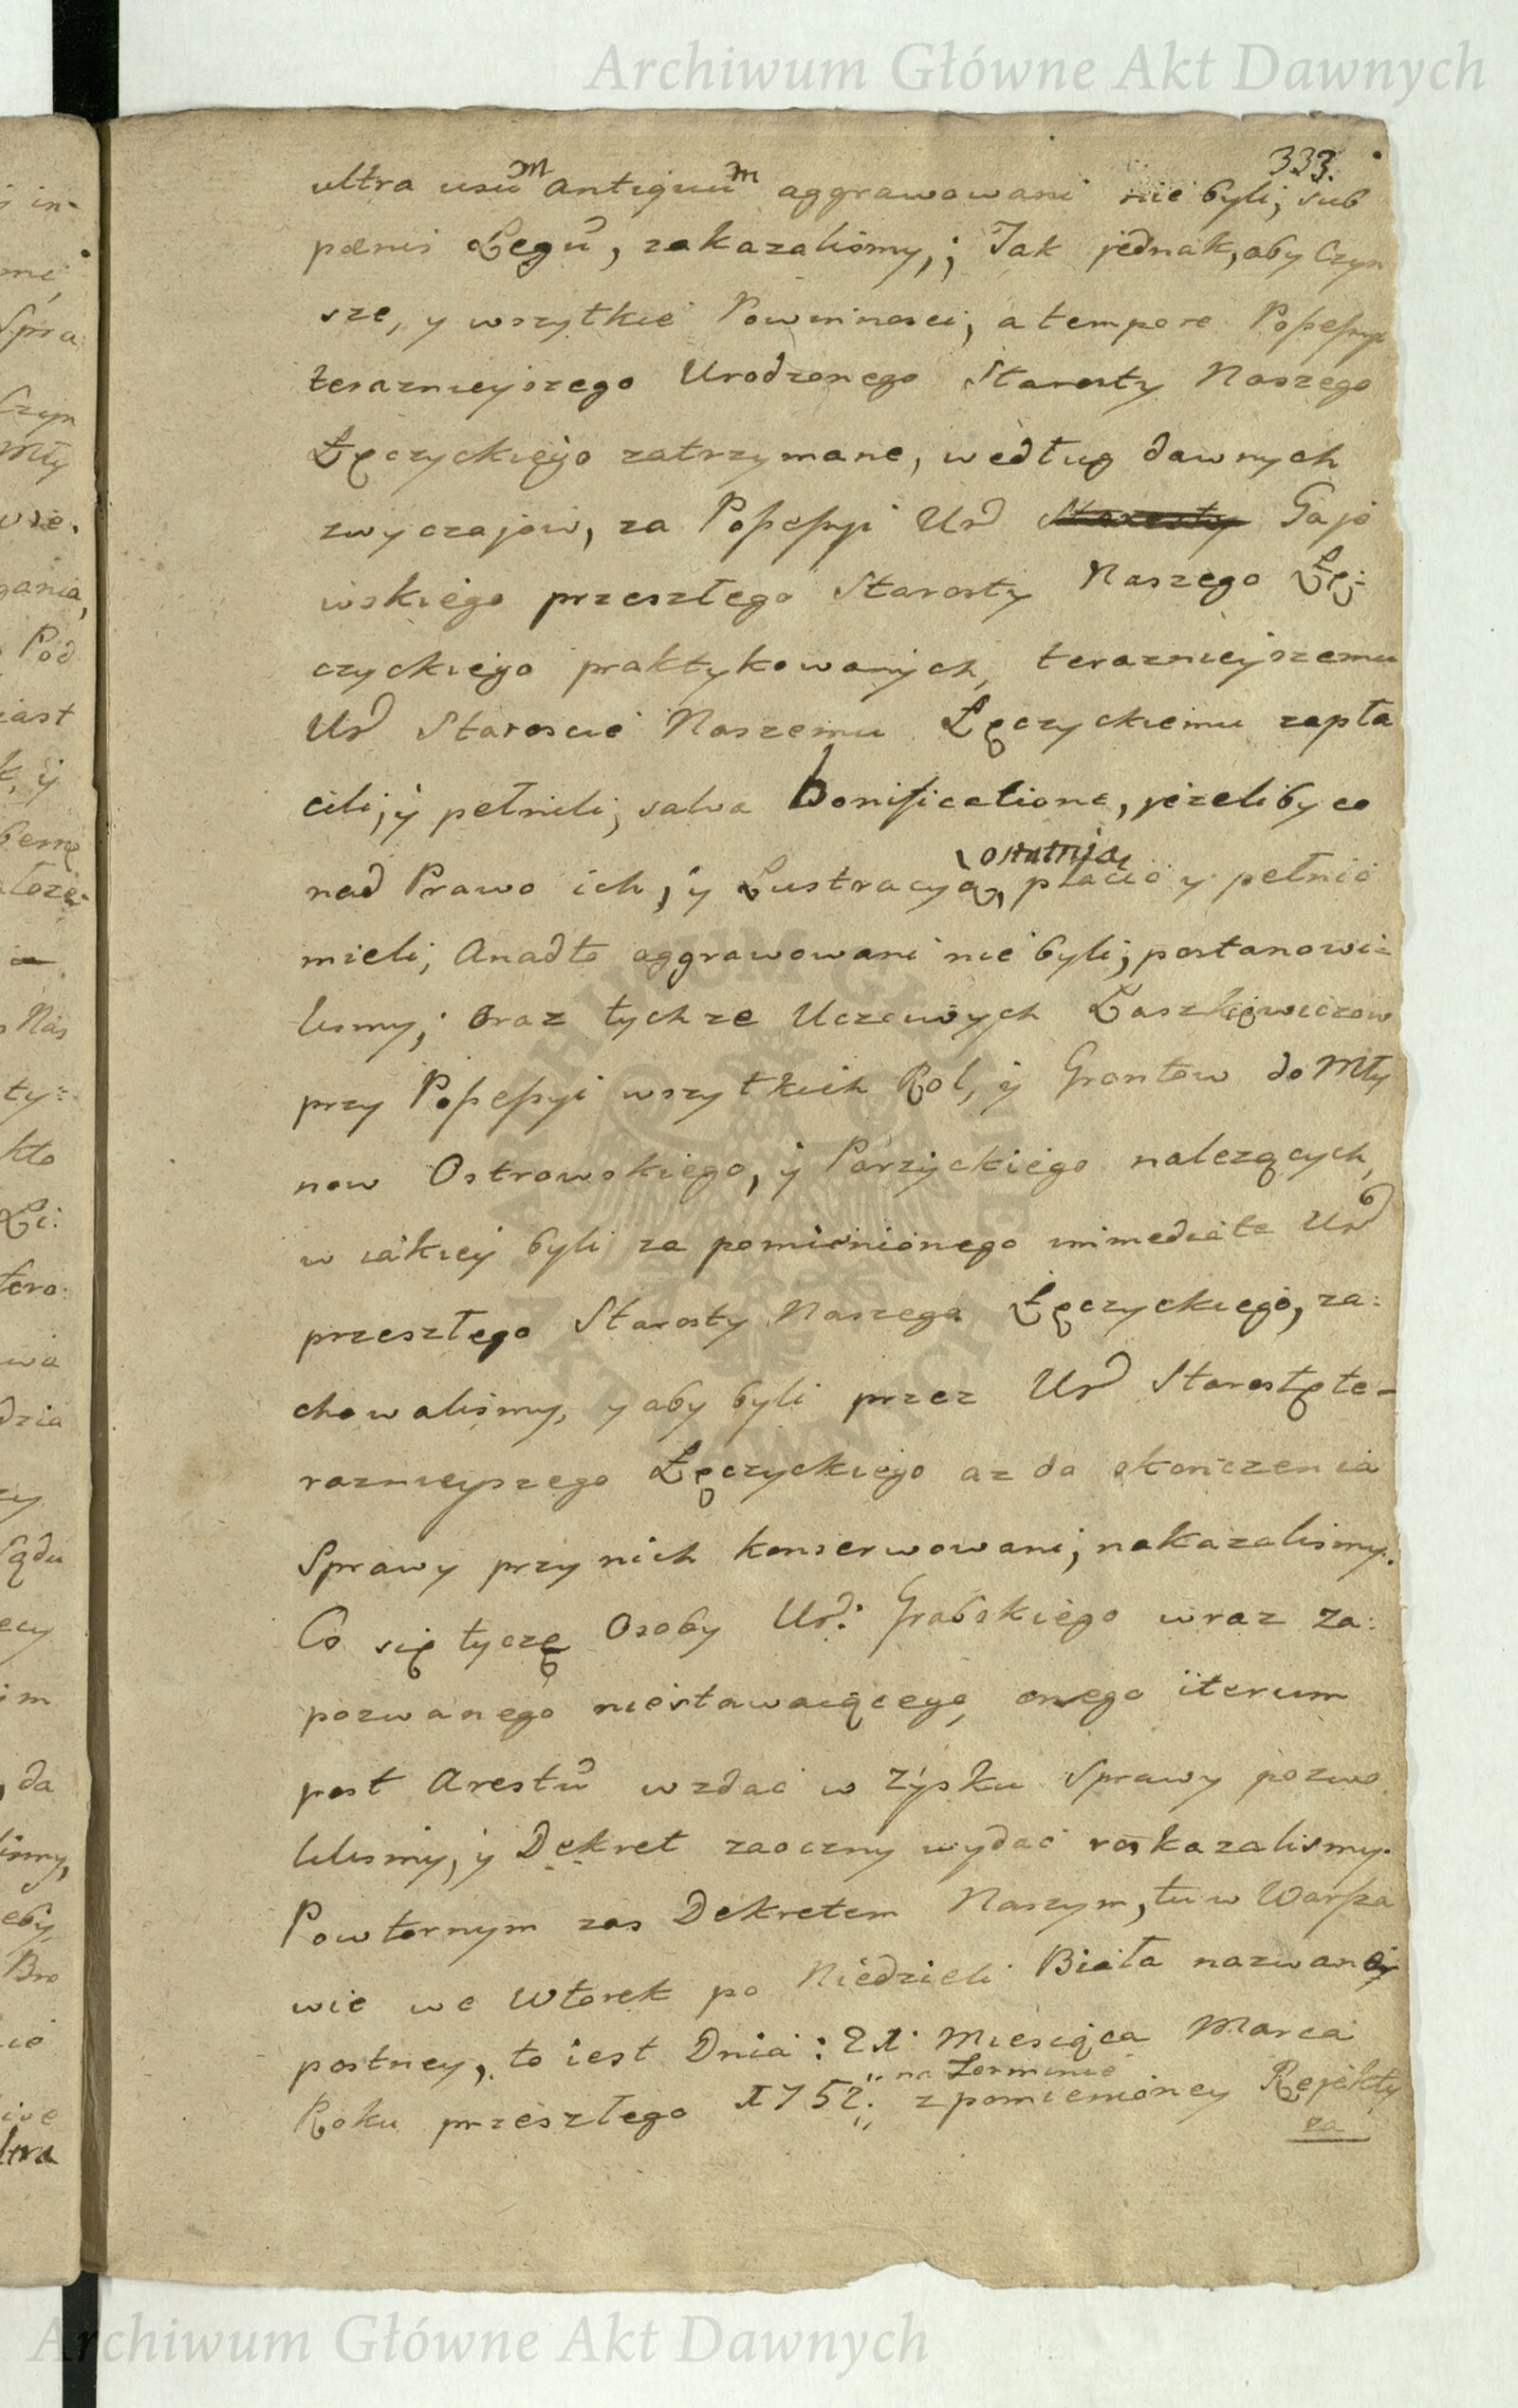 Archiwum Główne Akt Dawnych
333.
ultra usum antiquum aggrawowani nie byli, sub
pœnis Legu, zakazalismy,; Jak jednak, aby Czyn
sze, y wszytkie Powinnosci, a tempore Possessyi
teraznieyszego Urodzonego Starosty Naszego
Łęczyckiego zatrzymane, według dawnych
zwyczajow, za Possessyi Urd Starosty Gajo
wskiego przeszłego Starosty Naszego Łę:
czyckiego praktykowanych, teraznieyszemu
Urd Staroscie Naszemu Łęczyckiemu zapła
cili, y pełnili, salva bonificatione, jeżeliby co
ostatnią
nad Prawo ich, y Lustracyą, płacić y pełnić
mieli, Anadto aggrawowani nie byli, postanowi=
lismy; Oraz tychze Uczciwych Łaszkiewiczow
przy Possessyi wszytkich Rol, y Grontow do Mły
now Ostrowskiego, y Parzyckiego nalezących,
w iakiey byli za pomienionego immediate Urd
przeszłego Starosty Naszego Łęczyckiego, za:
chowalismy, y aby byli przez Urd Starostę te-
raznieyszego Łęczyckiego az do skończenia
Sprawy przy nich konserwowani, nakazalismy.
Co się tyczę Osoby Urd: Grabskiego wraz za:
pozwanego niestawaiącego, onego iterum
post Arestu wzdać w zysku Sprawy pozwo
lilismy, y Dekret zaoczny wydać roskazalismy.
Powtornym zas Dekretem Naszym, tu w Warsza
wie we Wtorek po Niedzieli Biała nazwaney
postney, to iest Dnia: 21: Miesiąca Marca
na Terminie
Roku przeszłego 1752. z pomienioney Rejekty
za
Archiwum Główne Akt Dawnych